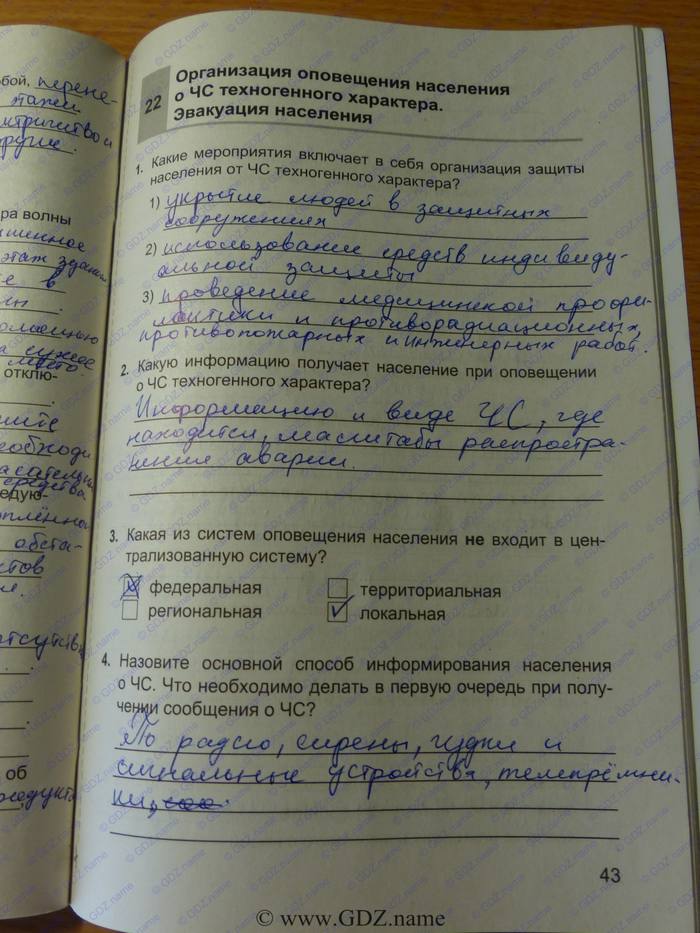 бой, перене-
тажей
ктричество и
другие.
ра волны
этаж здани
е в
отклю-
еобходи
асательн
средства
едую-
обста-
ктов
отсутств
об
22
Организация оповещения населения
о ЧС техногенного характера.
Эвакуация населения
1. Какие мероприятия включает в себя организация защиты
населения от ЧС техногенного характера?
1) укрытие людей в защитных
сооружениях
2) использование средств индивиду-
альной защиты
3) проведение медицинской профи-
лактики и противорадиационных,
противопожарных и инженерных работ.
2. Какую информацию получает население при оповещении
о ЧС техногенного характера?
Информацию и виде ЧС, где
находится, масштабы распростра-
нения аварии.
3. Какая из систем оповещения населения не входит в цен-
трализованную систему?
федеральная
территориальная
региональная
локальная
4. Назовите основной способ информирования населения
о ЧС. Что необходимо делать в первую очередь при полу-
чении сообщения о ЧС?
По радио, сирены, гудки и
сигнальные устройства, телепрёмни-
ки,
43
© www.GDZ.name